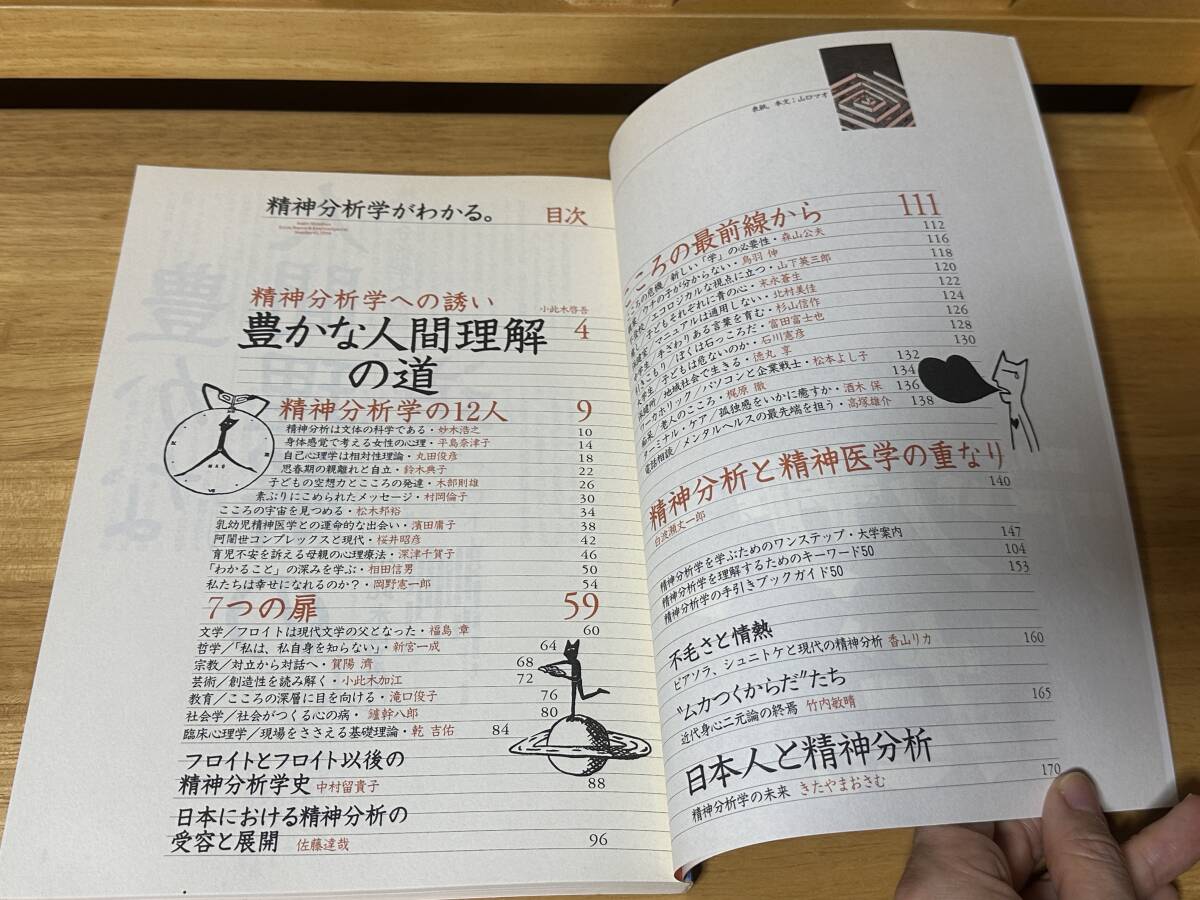 精神分析学がわかる。 目次
精神分析学への誘い 小此木啓吾
豊かな人間理解 4
の道
精神分析学の12人 9
精神分析は文体の科学である・妙木浩之 10
身体感覚で考える女性の心理・平島奈津子 14
自己心理学は相対性理論・丸田俊彦 18
思春期の親離れと自立・鈴木典子 22
子どもの空想力とこころの発達・木部則雄 26
素ぶりにこめられたメッセージ・村岡倫子 30
こころの宇宙を見つめる・松木邦裕 34
乳幼児精神医学との運命的な出会い・濱田庸子 38
阿闍世コンプレックスと現代・桜井昭彦 42
育児不安を訴える母親の心理療法・深津千賀子 46
「わかること」の深みを学ぶ・相田信男 50
私たちは幸せになれるのか?・岡野憲一郎 54
7つの扉 59
文学/フロイトは現代文学の父となった・福島 章 60
哲学/「私は、私自身を知らない」・新宮一成 64
宗教/対立から対話へ・賀陽 濟 68
芸術/創造性を読み解く・小此木加江 72
教育/こころの深層に目を向ける・滝口俊子 76
社会学/社会がつくる心の病・鑪幹八郎 80
臨床心理学/現場をささえる基礎理論・乾 吉佑 84
フロイトとフロイト以後の
精神分析学史 中村留貴子 88
日本における精神分析の
受容と展開 佐藤達哉 96
表紙、本文:山口マオ
こころの最前線から 111
こころの危機/新しい「学」の必要性・森山公夫 112
ウチの子が分からない・鳥羽 伸 116
エコロジカルな視点に立つ・山下英三郎 118
子どもそれぞれに青の心・末永蒼生 120
マニュアルは通用しない・北村美佳 122
手ざわりある言葉を育む・杉山信作 124
引きこもり/ぼくは石っころだ・富田富士也 126
子どもは危ないのか・石川憲彦 128
保健所/地域社会で生きる・徳丸 享 130
ワーカホリック/パソコンと企業戦士・松本よし子 132
老人のこころ・梶原 徹 134
ターミナル・ケア/孤独感をいかに癒すか・酒木 保 136
電話相談/メンタルヘルスの最先端を担う・高塚雄介 138
精神分析と精神医学の重なり
白波瀬丈一郎 140
精神分析学を学ぶためのワンステップ・大学案内 147
精神分析学を理解するためのキーワード50 104
精神分析学の手引きブックガイド50 153
不毛さと情熱
ピアソラ、シュニトケと現代の精神分析 香山リカ 160
“ムカつくからだ”たち
近代身心二元論の終焉 竹内敏晴 165
日本人と精神分析
精神分析学の未来 きたやまおさむ 170